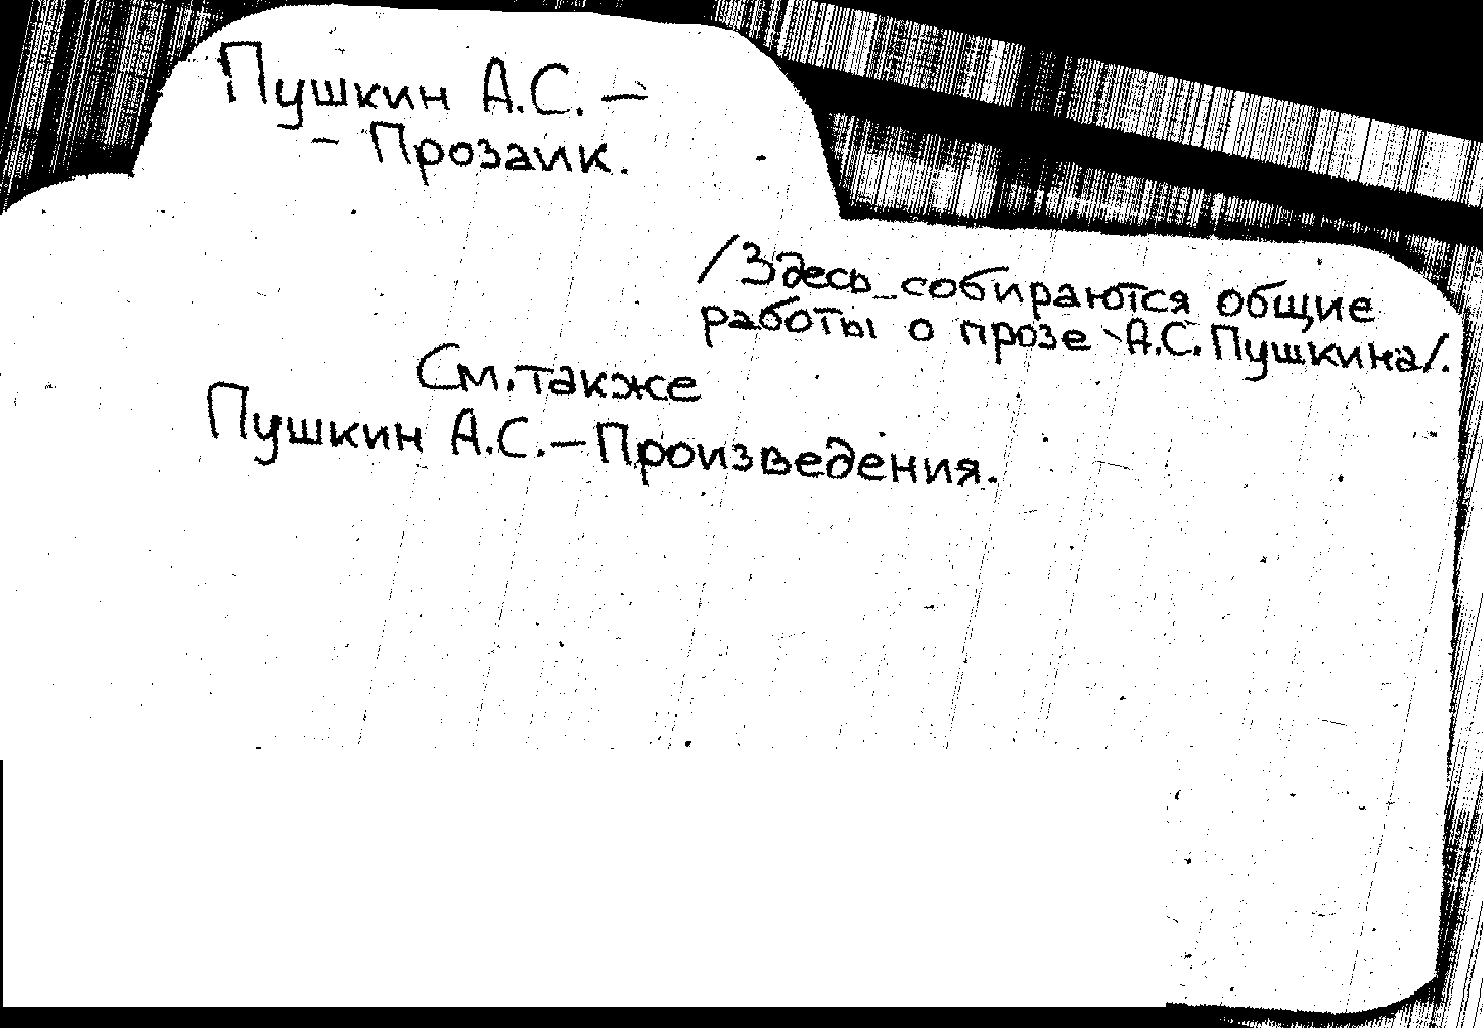 Пушкин А.С. –
– Прозаик.
/Здесь собираются общие
работы о прозе А.С. Пушкина/.
См. также
Пушкин А.С. – Произведения.